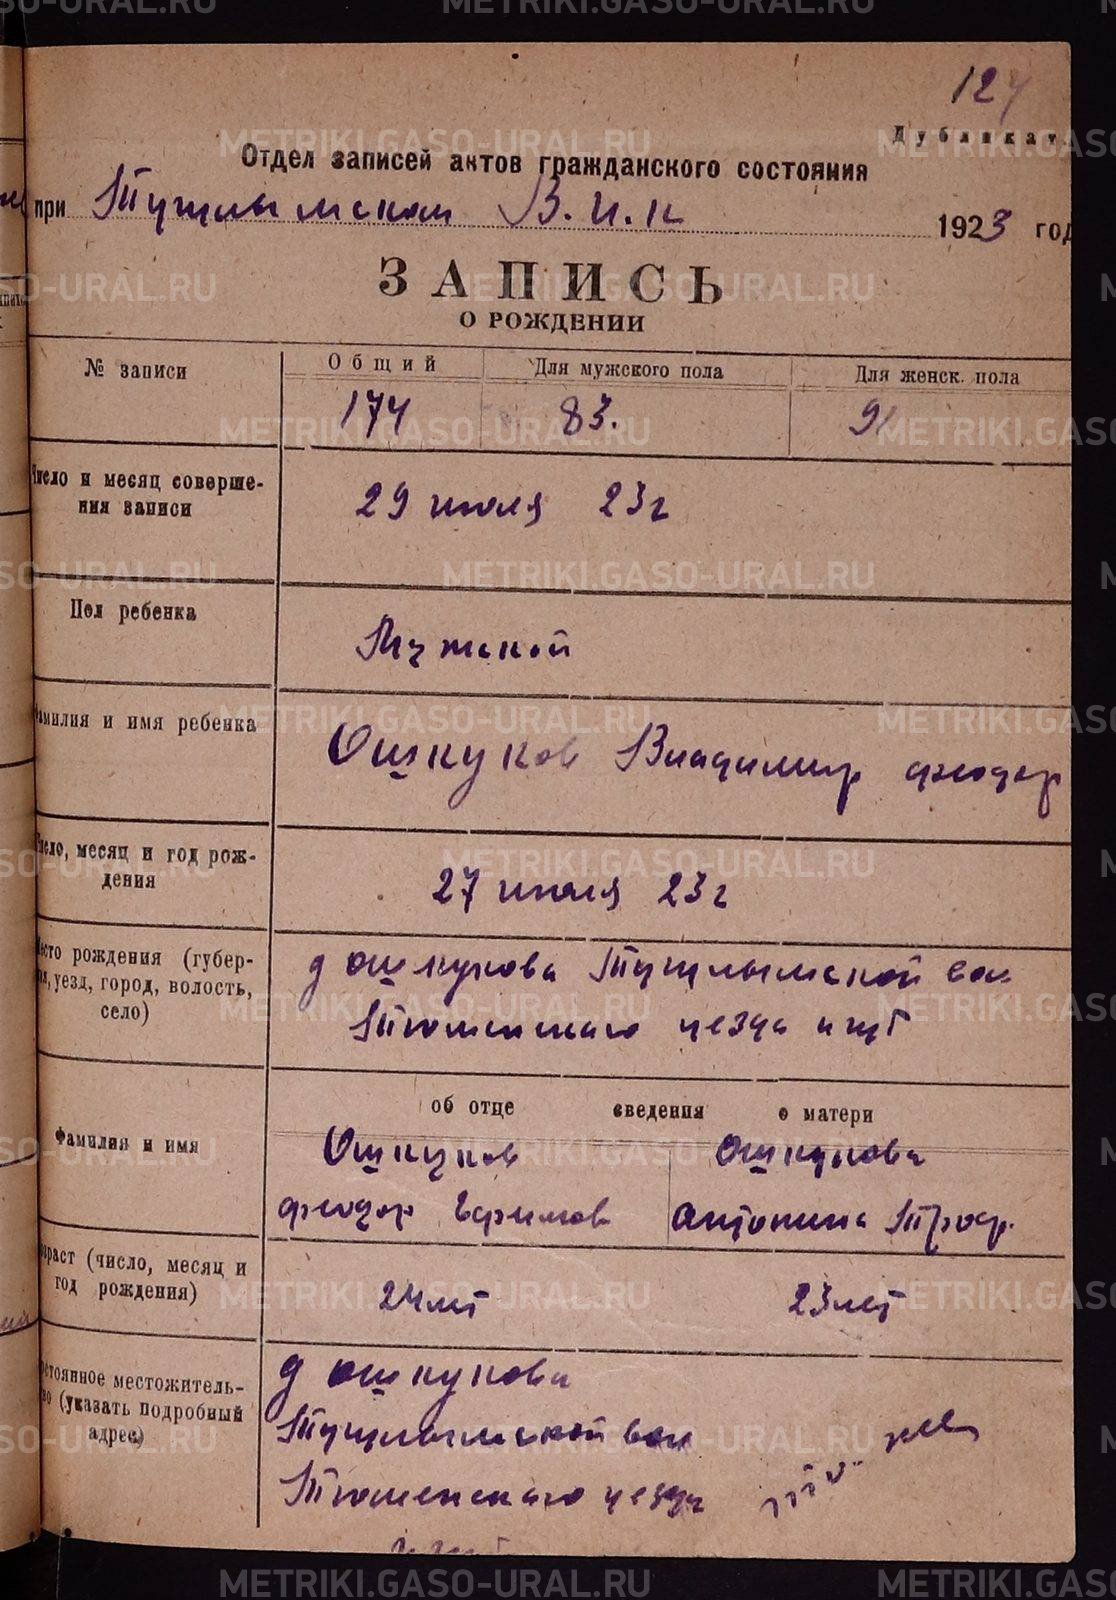 124
Дубликат.
Отдел записей актов гражданского состояния
при Тугулымском В.И.К 1923 год
ЗАПИСЬ
О РОЖДЕНИИ
№ записи Общий Для мужского пола Для женск. пола
174 83. 91
Число и месяц соверше-
ния записи
29 июля 23г
Пол ребенка
Мужской
Фамилия и имя ребенка
Ошкуков Владимир Феодор
Число, месяц и год рож-
дения
27 июля 23г
Место рождения (губер-
ния, уезд, город, волость,
село)
д Ошкукова Тугулымской вол
Тюменскаго уезда и губ
об отце сведения о матери
Фамилия и имя
Ошкуков Ошкукова
Феодор Ефимов Антонина Троф.
Возраст (число, месяц и
год рождения)
24 лет 23 лет
Постоянное местожитель-
во (указать подробный
адрес)
д Ошкукова
Тугулымской вол
Тюменскаго уезда
и губ
METRIKI.GASO-URAL.RU